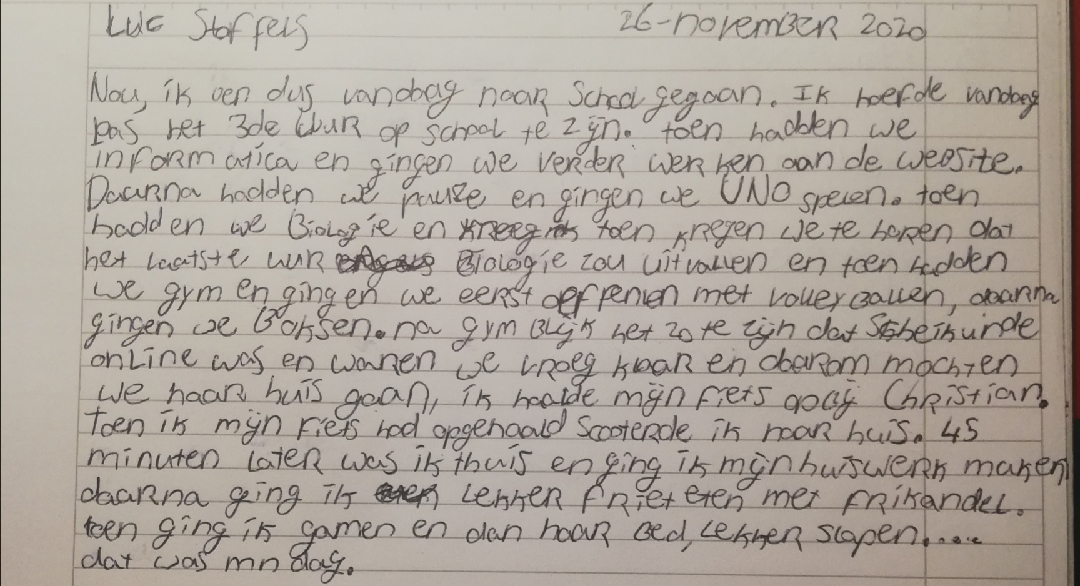 Luc Stoffels 26-november 2020
Nou, ik ben dus vandaag naar School gegaan. Ik hoefde vandaag
pas het 3de uur op school te zijn. toen hadden we
informatica en gingen we verder werken aan de website.
Daarna hadden we pauze en gingen we UNO spelen. toen
hadden we Biologie en toen kregen we te horen dat
het laatste uur Biologie zou uitvallen en toen hadden
we gym en gingen we eerst oeffenen met volleyballen, daarna
gingen we Boksen. na gym Blijk het zo te zijn dat Scheikunde
online was en waren we vroeg klaar en daarom mochten
we naar huis gaan, ik haalde mijn fiets op bij Christian.
Toen ik mijn fiets had opgehaald Scooterde ik naar huis. 45
minuten later was ik thuis en ging ik mijn huiswerk maken
daarna ging ik Lekker friet eten met frikandel.
toen ging ik gamen en dan naar Bed, Lekker slapen.....
dat was mn dag.